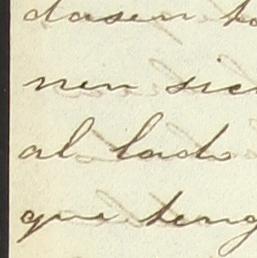 dasen to
nen sie
al lado
que teng